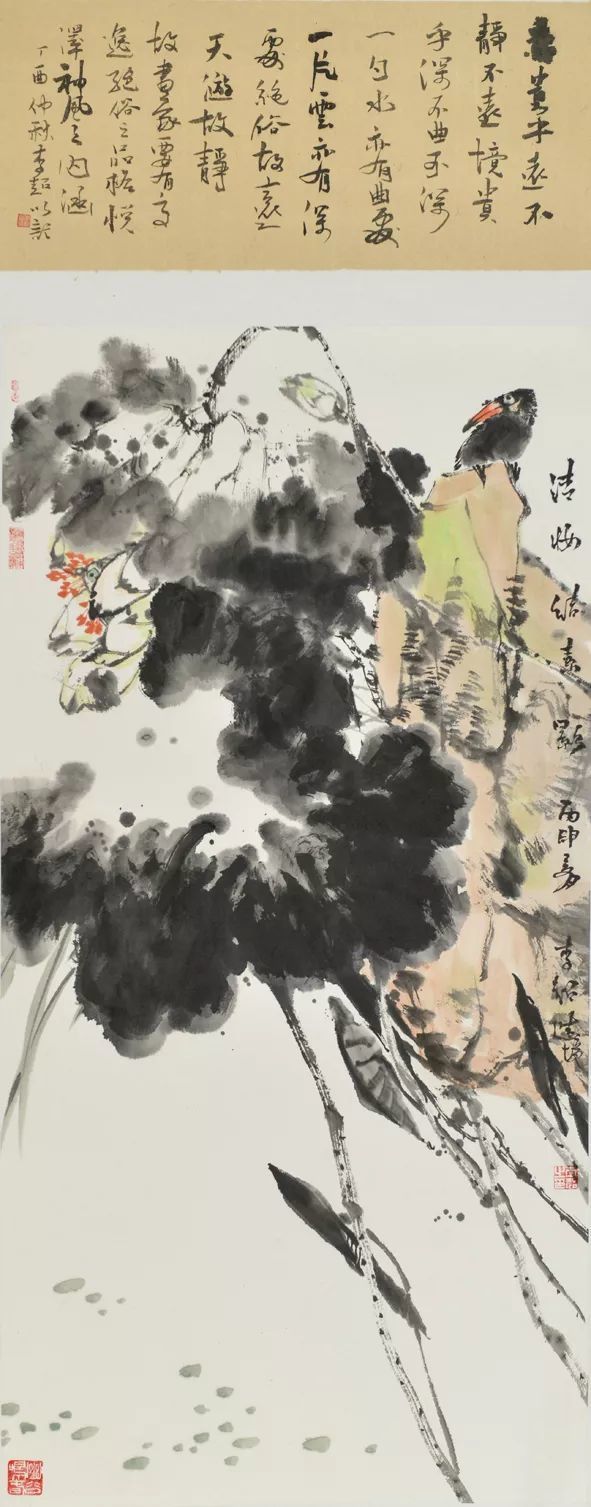 貴乎遠不
靜不遠境貴
乎深不曲不深
一勺水亦有曲處
一片雲亦有深
處絕俗故遠
天遊故靜
故畫家要有高
逸絕俗之品格
神風之內涵
丁酉仲秋李
丙申 李